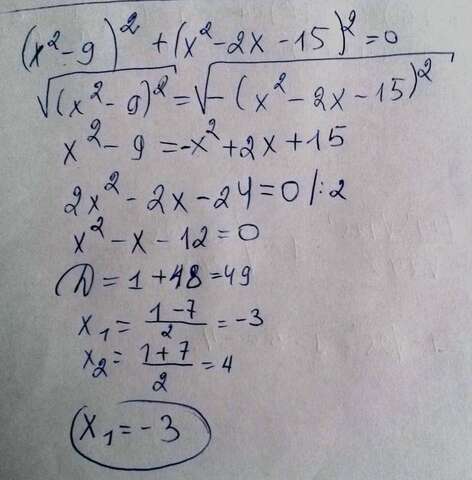 (x²-9)² + (x²-2x-15)² = 0
√(x²-9)² = √-(x²-2x-15)²
x²-9 = -x²+2x+15
2x²-2x-24 = 0 /:2
x²-x-12 = 0
D = 1+48 = 49
x₁ = (1-7)/2 = -3
x₂ = (1+7)/2 = 4
x₁ = -3